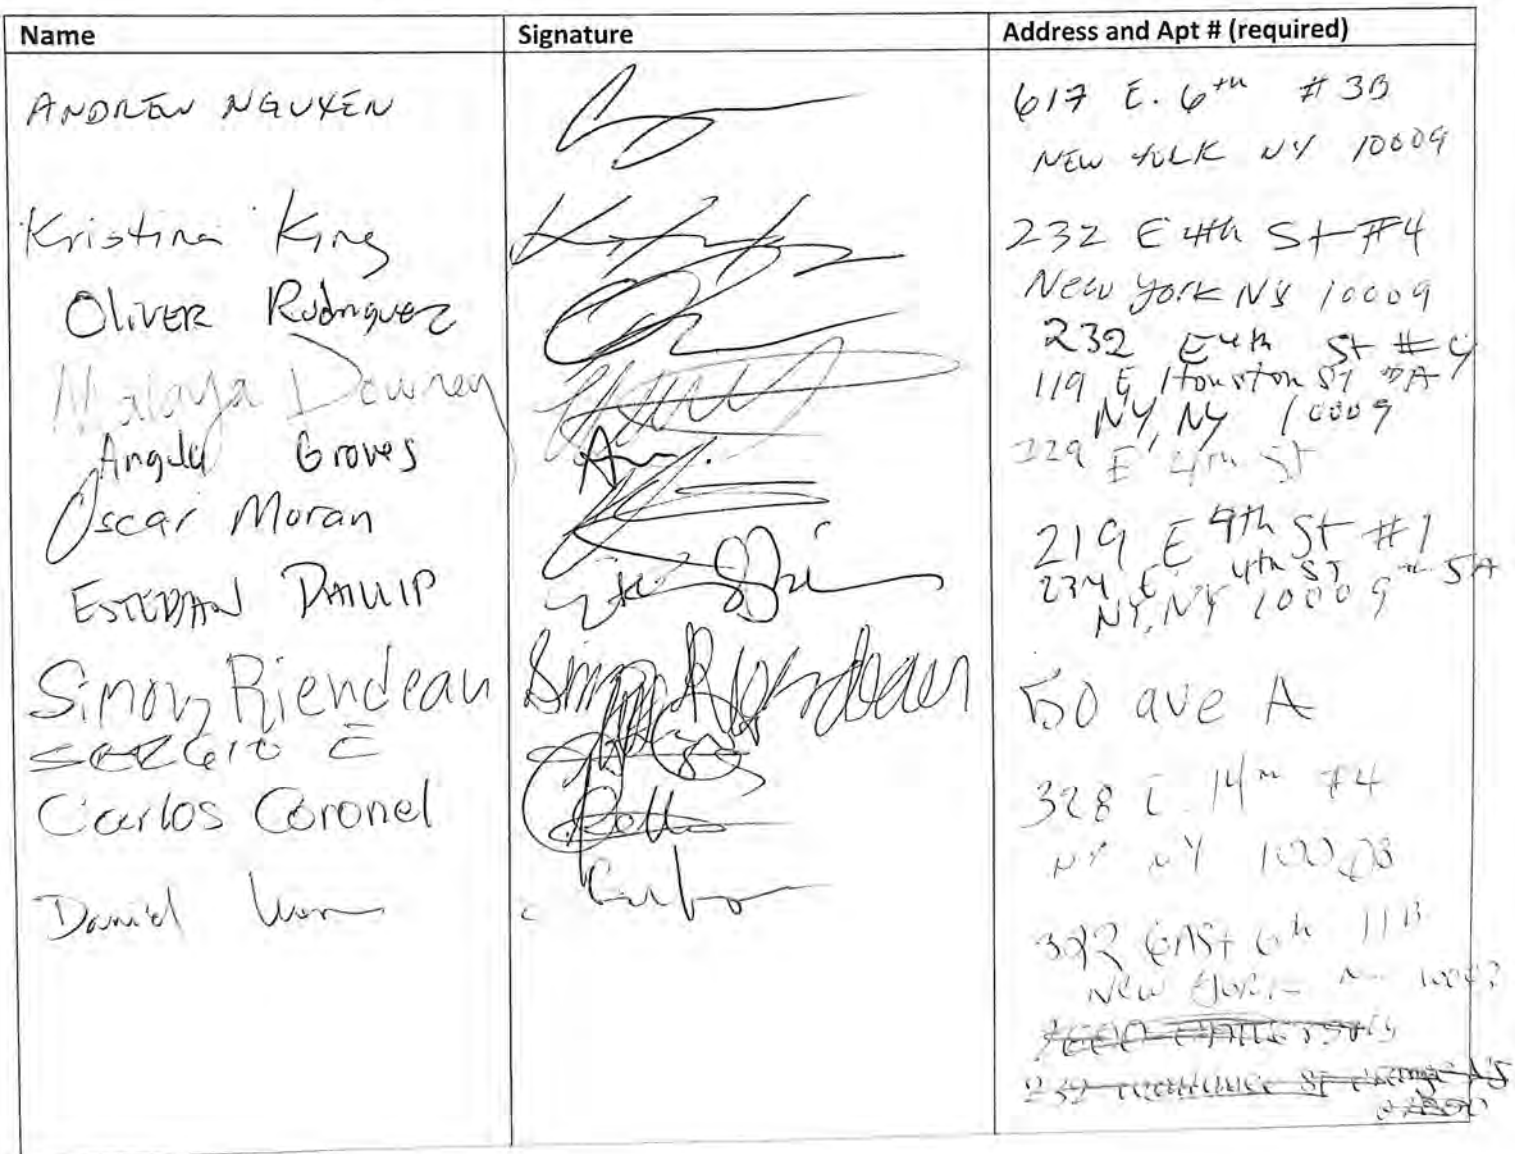 Name Signature Address and Apt # (required)
ANDREW NGUYEN 617 E. 6th #3B
NEW YORK NY 10009
Kristina King 232 E 4th St #4
New York NY 10009
OLIVER Rodriguez 232 E 4th St #4
Malaya Downey 119 E Houston ST #A
NY, NY 10009
Angela Groves 229 E 4th St
Oscar Moran 219 E 9th St #1
ESTEBAN 234 E 4th ST 5A
NY, NY 10009
Simon Riendeau Simon Riendeau 50 ave A
SERGIO E
Carlos Coronel 328 E. 14th #4
NY NY
Daniel
EAST 6th 11B
New York